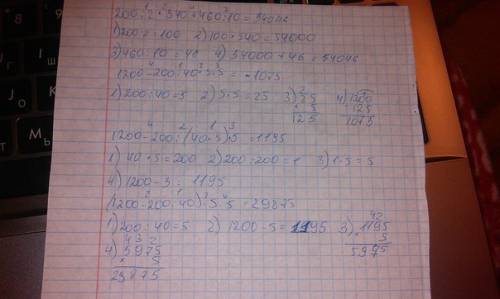 200:2•540+460:10=54046
1)200:2=100 2)100•540=54000
3)460:10=46 4)54000+46=54046
1200-200:40•5•5=1075
1)200:40=5 2)5•5=25 3) 25 4) 1200
× 5 - 125
125 1075
1200-200:(40•5)•5=1195
1) 40•5=200 2)200:200=1 3)1•5=5
4)1200-5=1195
(1200-200:40)•5•5=29875
1)200:40=5 2) 1200-5=1195 3) 1195
× 5
4) 5975 5975
× 5
29875